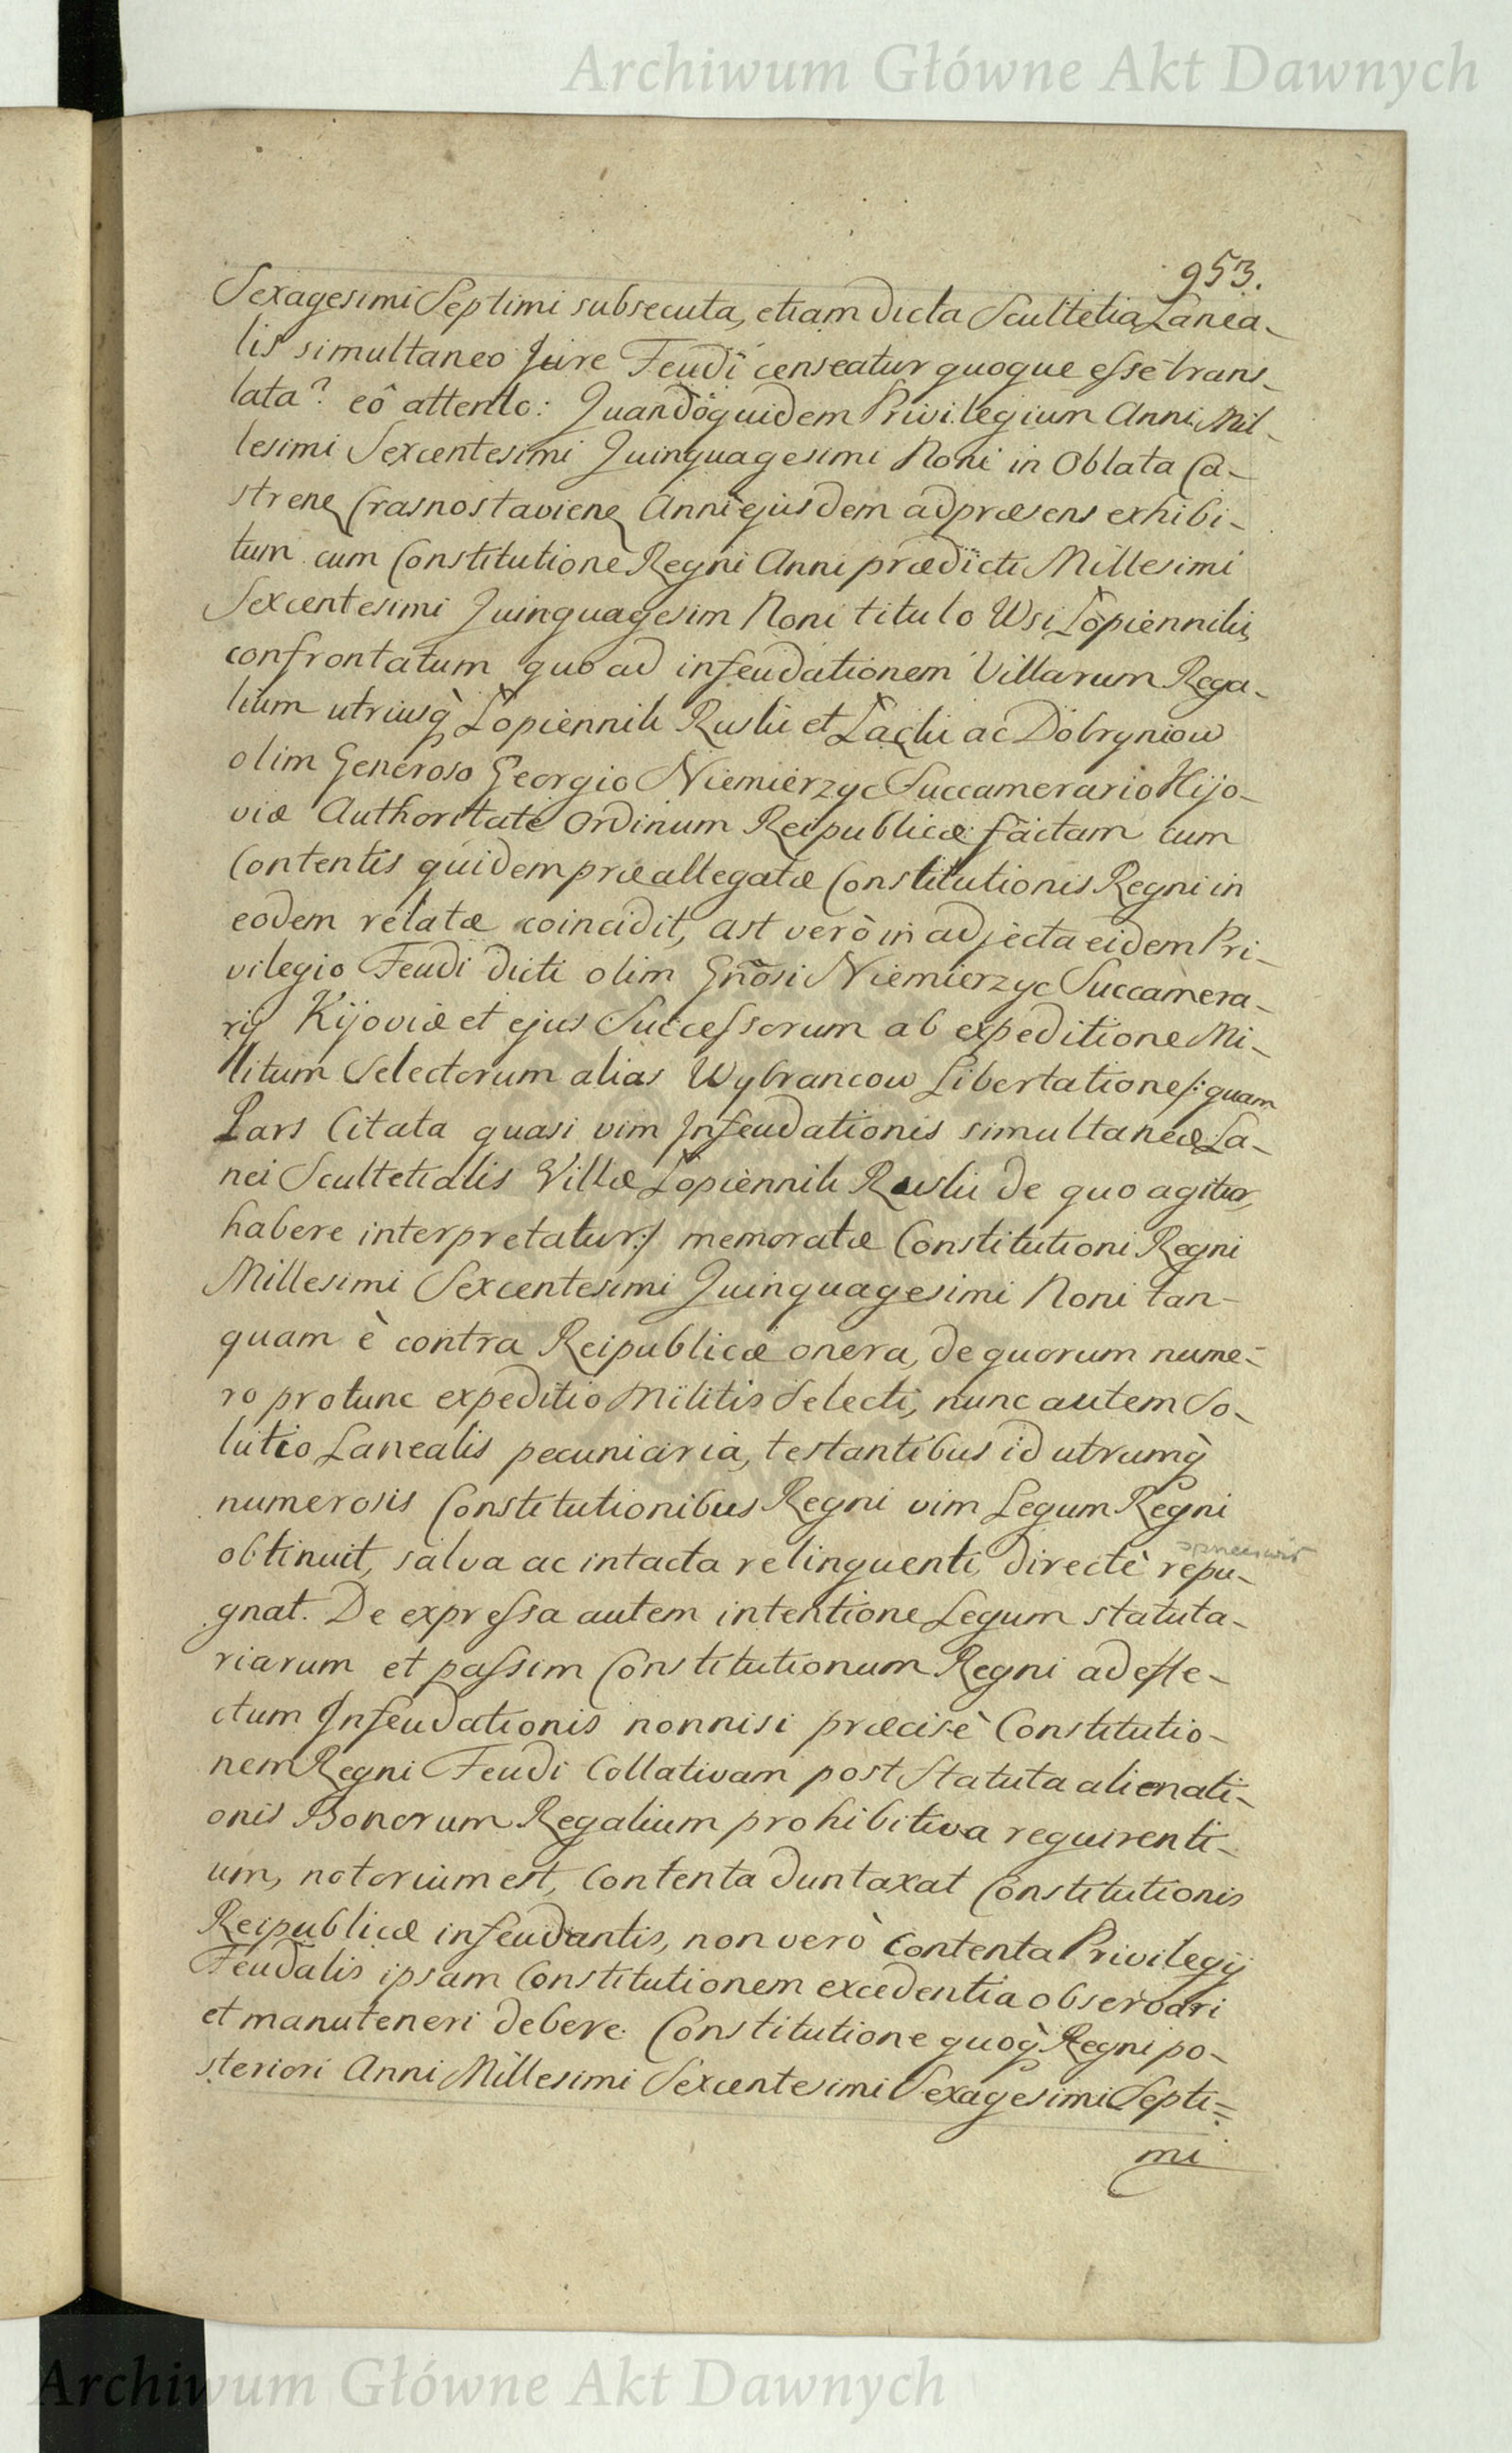 Archiwum Główne Akt Dawnych
953.
Sexagesimi Septimi subsecuta, etiam dicta Scultetia Lanea-
lis simultaneo Jure Feudi censeatur quoque esse trans-
lata? eô attento: Quandoquidem Privilegium Anni Mil-
lesimi Sexcentesimi Quinquagesimi Noni in Oblata Ca-
stren Crasnostavien Anni ejusdem ad præsens exhibi-
tum cum Constitutione Regni Anni prædicti Millesimi
Sexcentesimi Quinquagesim Noni titulo Wsi Łopiennikι
confrontatum quo ad infeudationem Villarum Rega-
lium utriusq̀ Łopiennik Ruski et Łacki ac Dobryniow
olim Generoso Georgio Niemierzyc Succamerario Kijo-
viæ Authoritate Ordinum Reipublicæ factam cum
Contentis quidem præallegatæ Constitutionis Regni in
eodem relatæ coincidit, ast verò in adjecta eidem Pri-
vilegio Feudi dicti olim Gnõsi Niemierzyc Succamera-
rij Kijoviæ et ejus Successorum ab expeditione Mi-
litum Selectorum alias Wybrancow Libertatione /: quam
Pars Citata quasi vim Infeudationis simultaneæ La-
nei Scultetialis Villæ Łopiennik Ruski de quo agitur,
habere interpretatur :/ memoratæ Constitutioni Regni
Millesimi Sexcentesimi Quinquagesimi Noni tan-
quam è contra Reipublicæ onera, de quorum nume-
ro protunc expeditio Militis Selecti, nunc autem So-
lutio Lanealis pecuniaria, testantibus id utrumq̀
numerosis Constitutionibus Regni vim Legum Regni
obtinuit, salva ac intacta relinquenti, directè repu-
gnat. De expressa autem intentione Legum statuta-
riarum et passim Constitutionum Regni ad effe-
ctum Infeudationis nonnisi præcisè Constitutio-
nem Regni Feudi Collativam post Statuta alienati-
onis Bonorum Regalium prohibitiva requirenti-
um, notorium est, Contenta duntaxat Constitutionis
Reipublicæ infeudantis, non verò Contenta Privilegij
Feudalis ipsam Constitutionem excedentia observari
et manuteneri debere. Constitutione quoq̀ Regni po-
steriori Anni Millesimi Sexcentesimi Sexagesimi Septi=
mi
Archiwum Główne Akt Dawnych